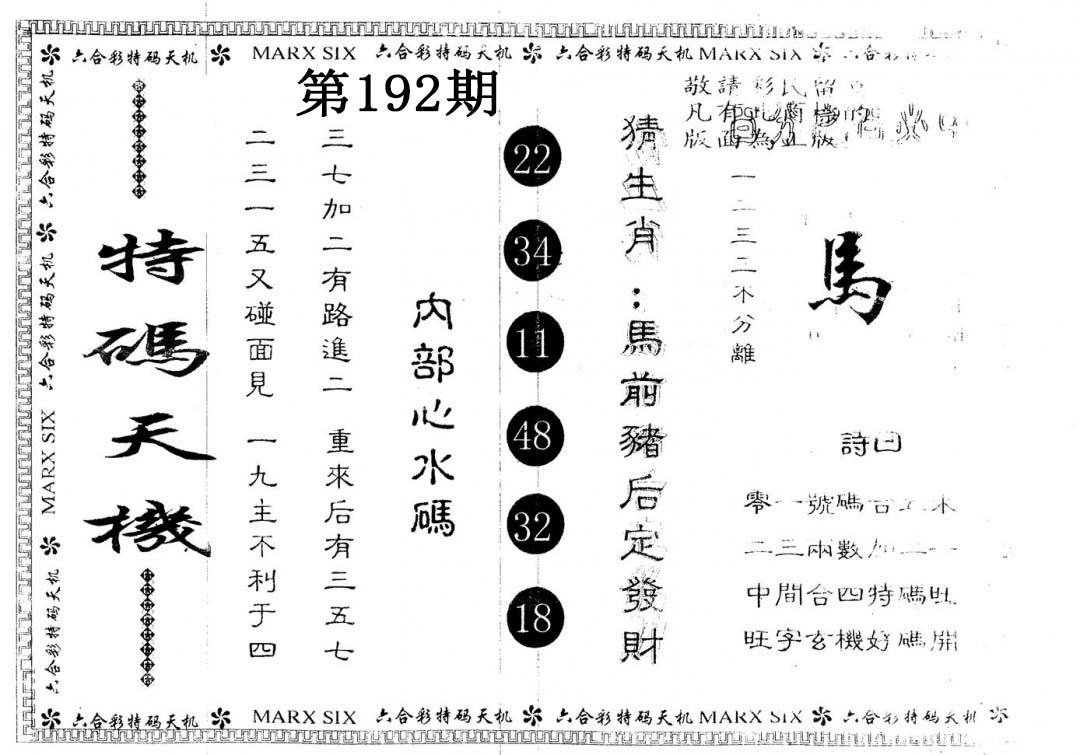 六合彩特码天机 MARX SIX 六合彩特码天机 六合彩特码天机 MARX SIX
第192期
敬請彩民留
凡有
版面為正版
特碼天機
三七加二有路進二 重來后有三五七
二三一五又碰面見 一九主不利于四
內部心水碼
22
34
11
48
32
18
猜生肖：馬前豬后定發財
一二三二不分離
馬
詩曰
零一號碼合
二三兩數加二一
中間合四特碼旺
旺字玄機好碼開
六合彩特码天机 MARX SIX 六合彩特码天机 六合彩特码天机
六合彩特码天机 MARX SIX 六合彩特码天机 六合彩特码天机 MARX SIX 六合彩特码天机